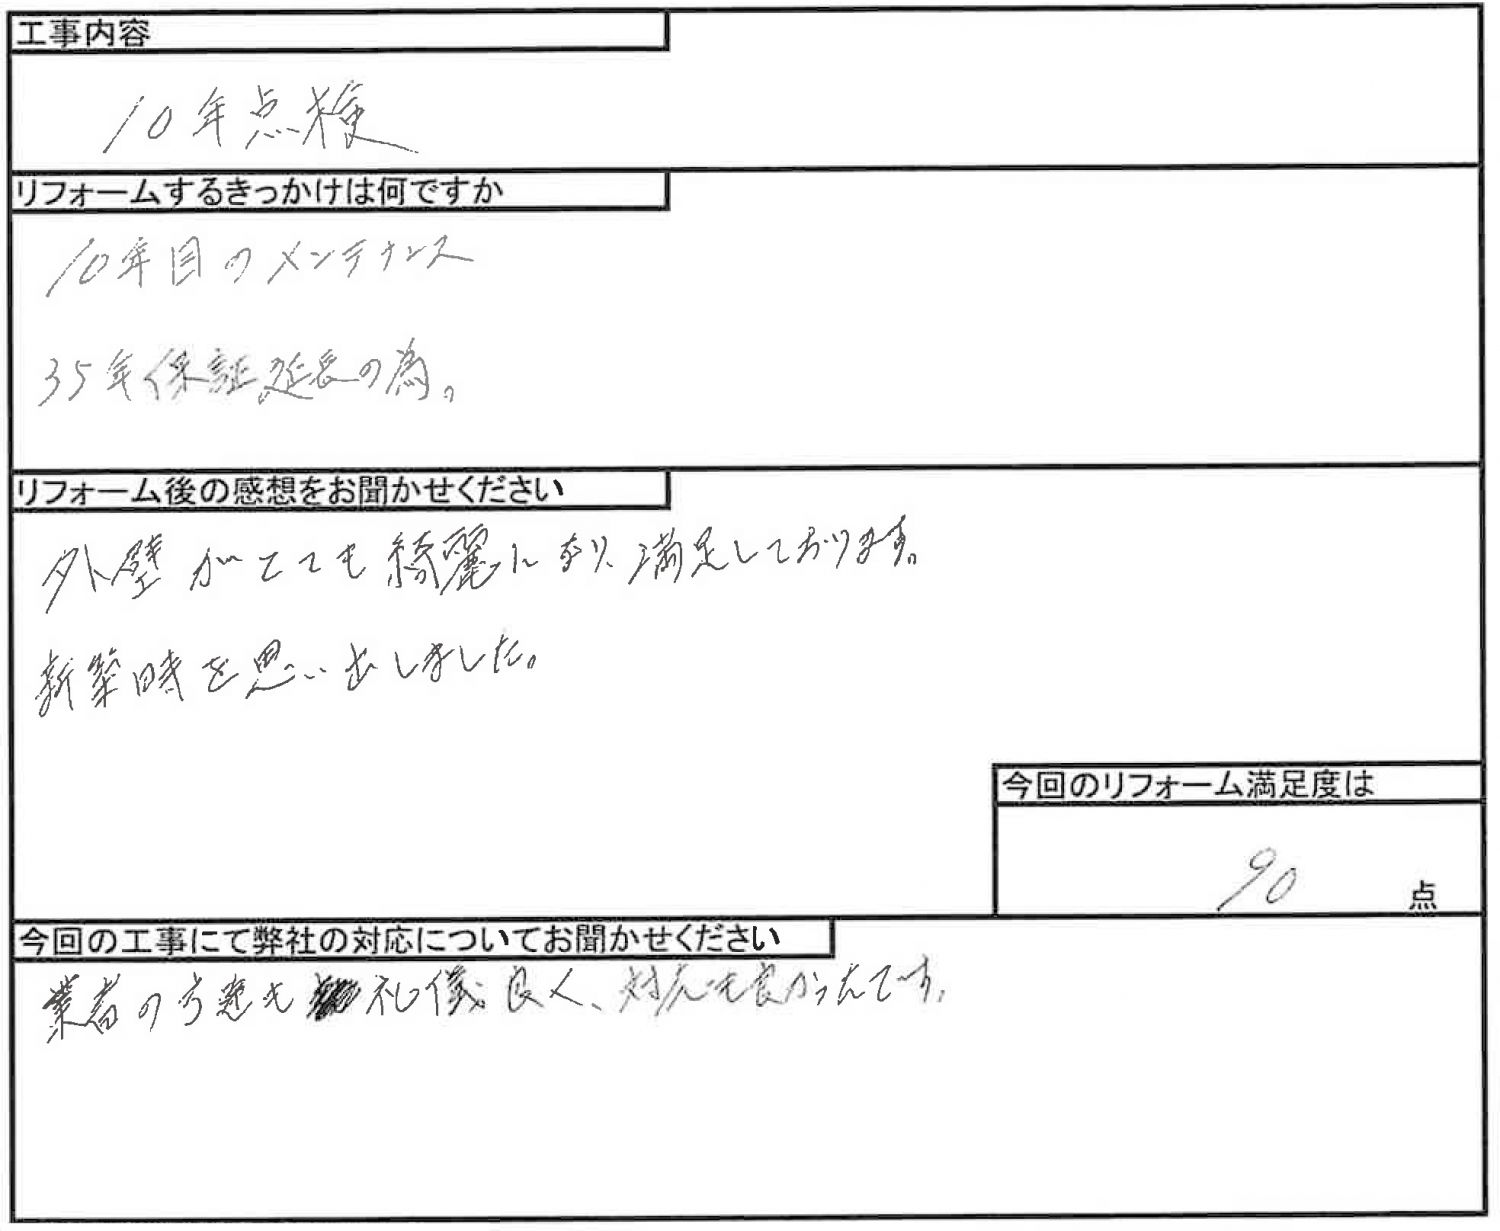 工事内容
10年点検
リフォームするきっかけは何ですか
10年目のメンテナンス
35年保証延長の為。
リフォーム後の感想をお聞かせください
外壁がとても綺麗になり、満足しております。
新築時を思い出しました。
今回のリフォーム満足度は
90 点
今回の工事にて弊社の対応についてお聞かせください
業者の方達も礼儀良く、対応も良かったです。